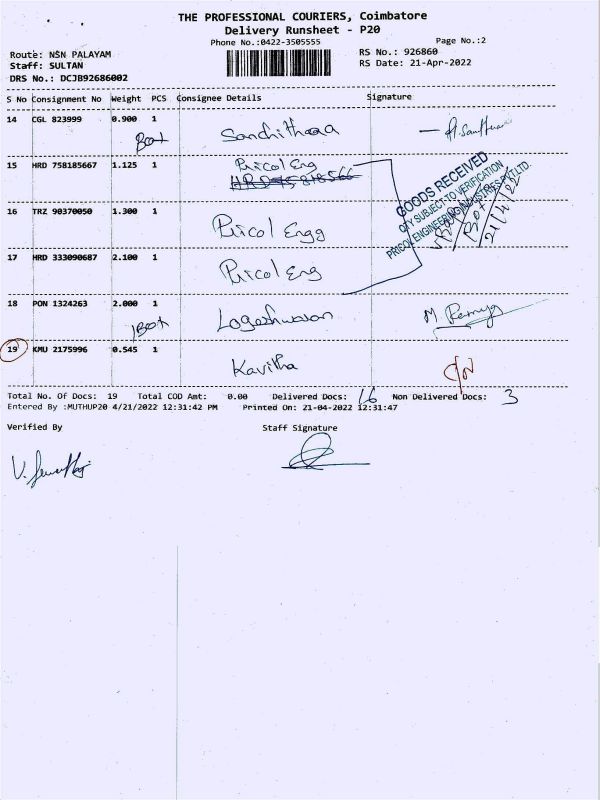 THE PROFESSIONAL COURIERS, Coimbatore
Delivery Runsheet - P20
Phone No.:0422-3505555
Page No.:2
Route: NSN PALAYAM
RS No.: 926860
Staff: SULTAN
RS Date: 21-Apr-2022
DRS No.: DCJB92686002
S No Consignment No Weight PCS Consignee Details Signature
14 CGL 823999 0.900 1
Box Sanchithaa
15 HRD 758185667 1.125 1 Pricol Eng
GOODS RECEIVED
QTY SUBJECT TO VERIFICATION
PRICOL ENGINEERING INDUSTRIES PVT LTD.
21/4/22
16 TRZ 90370050 1.300 1
Pricol Engg
17 HRD 333090687 2.100 1
Pricol Eng
18 PON 1324263 2.000 1
1Box Logeshwaran M Ramya
19 KMU 2175996 0.545 1
Kavitha
Total No. Of Docs: 19 Total COD Amt: 0.00 Delivered Docs: 16 Non Delivered Docs: 3
Entered By :MUTHUP20 4/21/2022 12:31:42 PM Printed On: 21-04-2022 12:31:47
Verified By Staff Signature